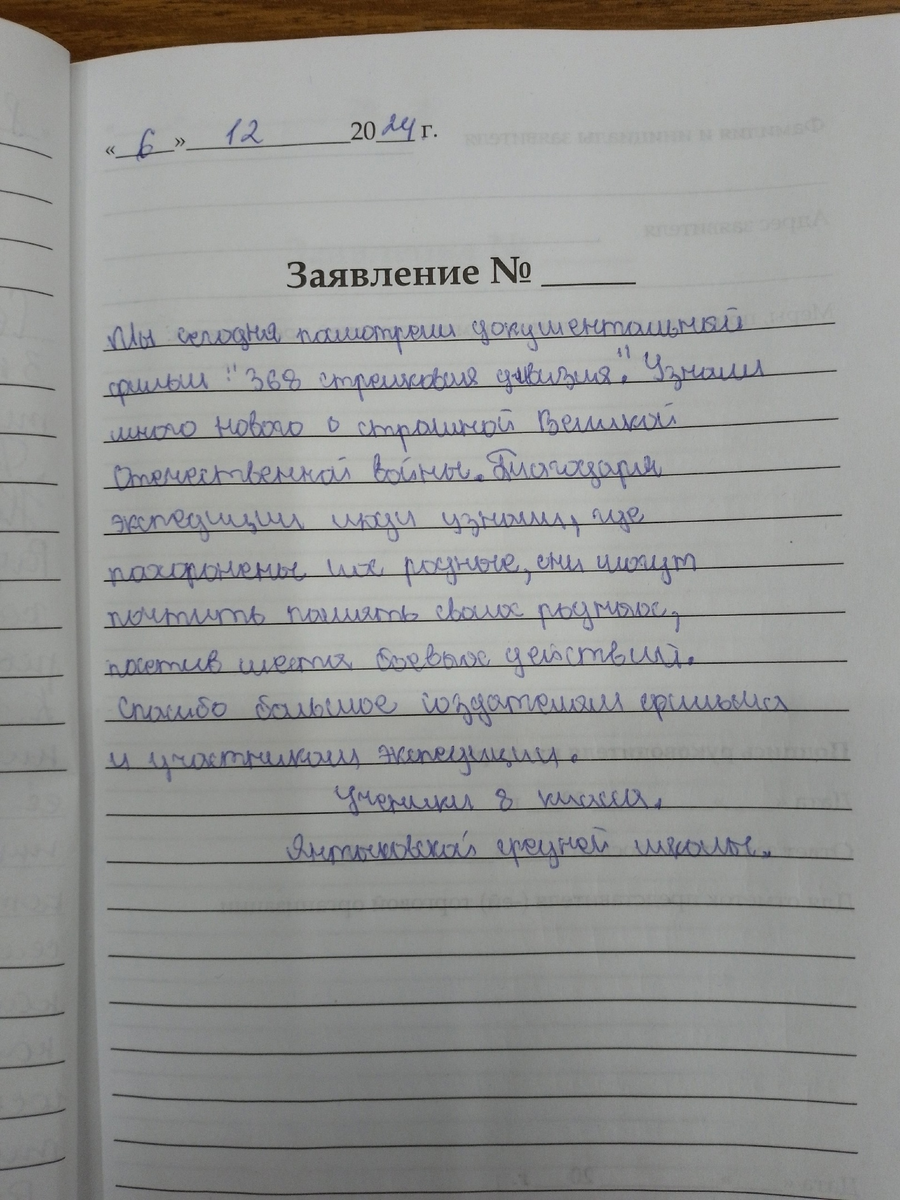 «6» 12 2024 г.
Заявление № ____
Мы сегодня посмотрели документальный
фильм "368 стрелковая дивизия". Узнали
много нового о страшной Великой
Отечественной войны. Благодаря
экспедиции люди узнали, где
похоронены их родные, они могут
почтить память своих родных,
посетив места боевых действий.
Спасибо большое создателям фильма
и участникам экспедиции.
Ученики 8 класса.
Янтыковской средней школы.